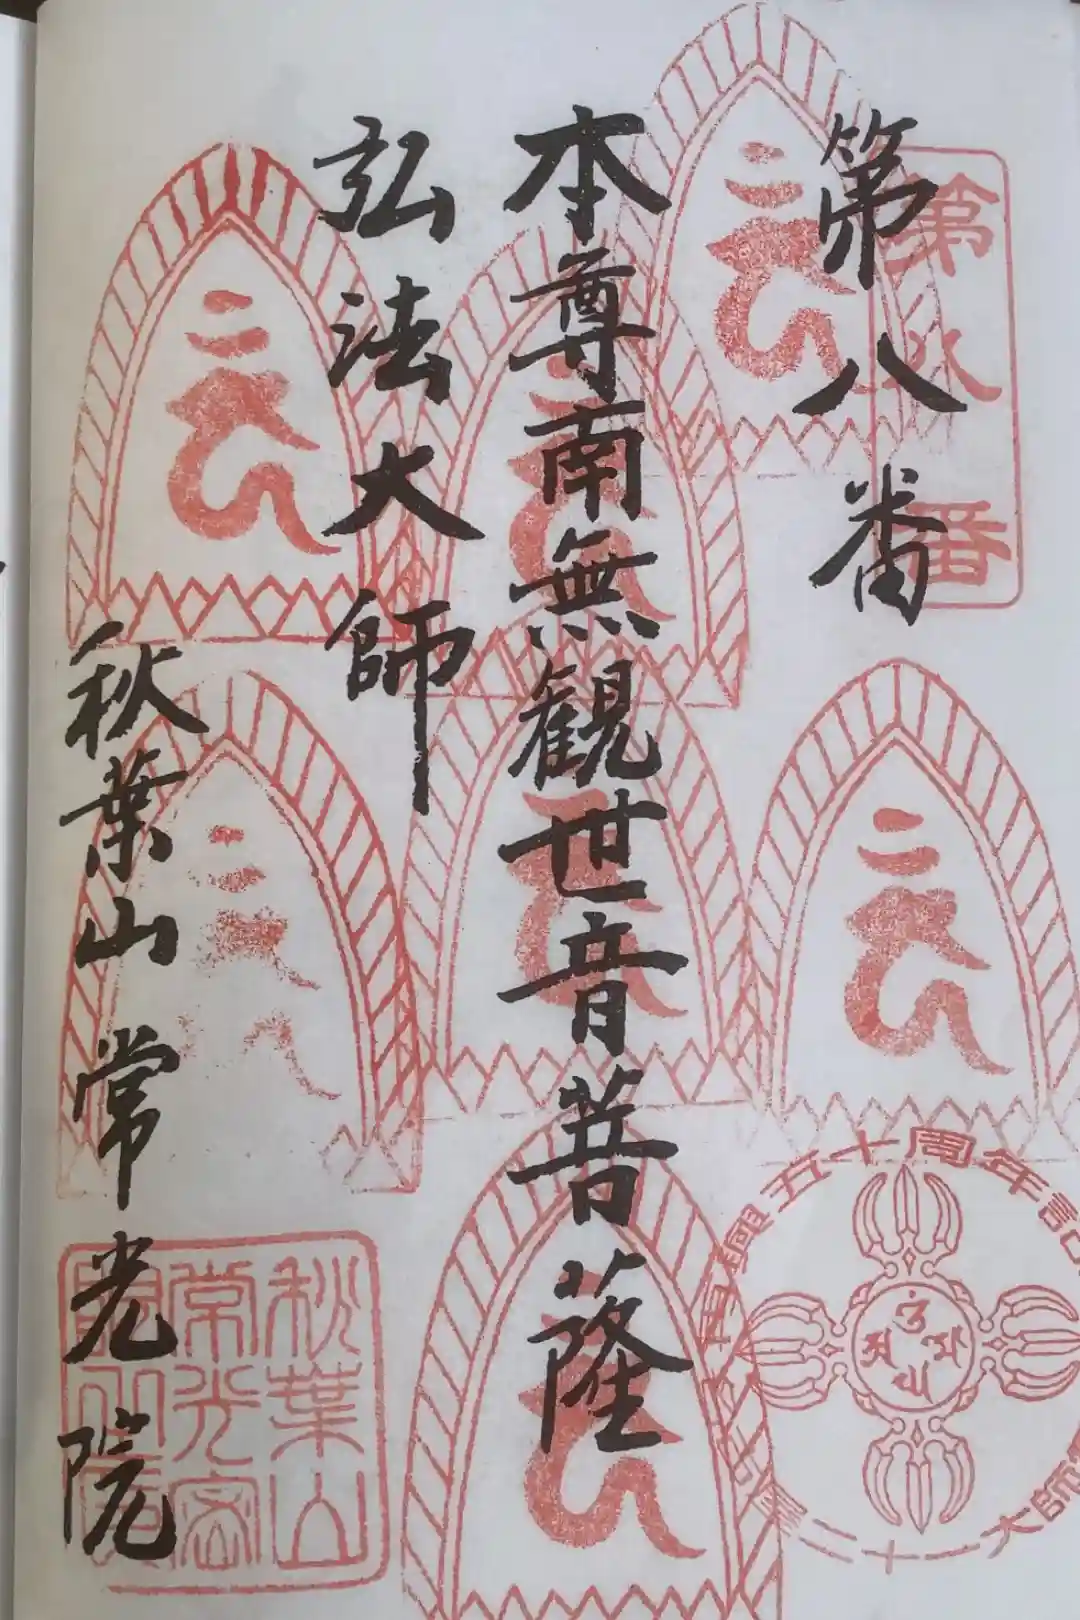 第八番
第八番
本尊南無観世音菩薩
弘法大師
秋葉山常光院
再興五十周年記
二十一大師
秋葉山
常光密